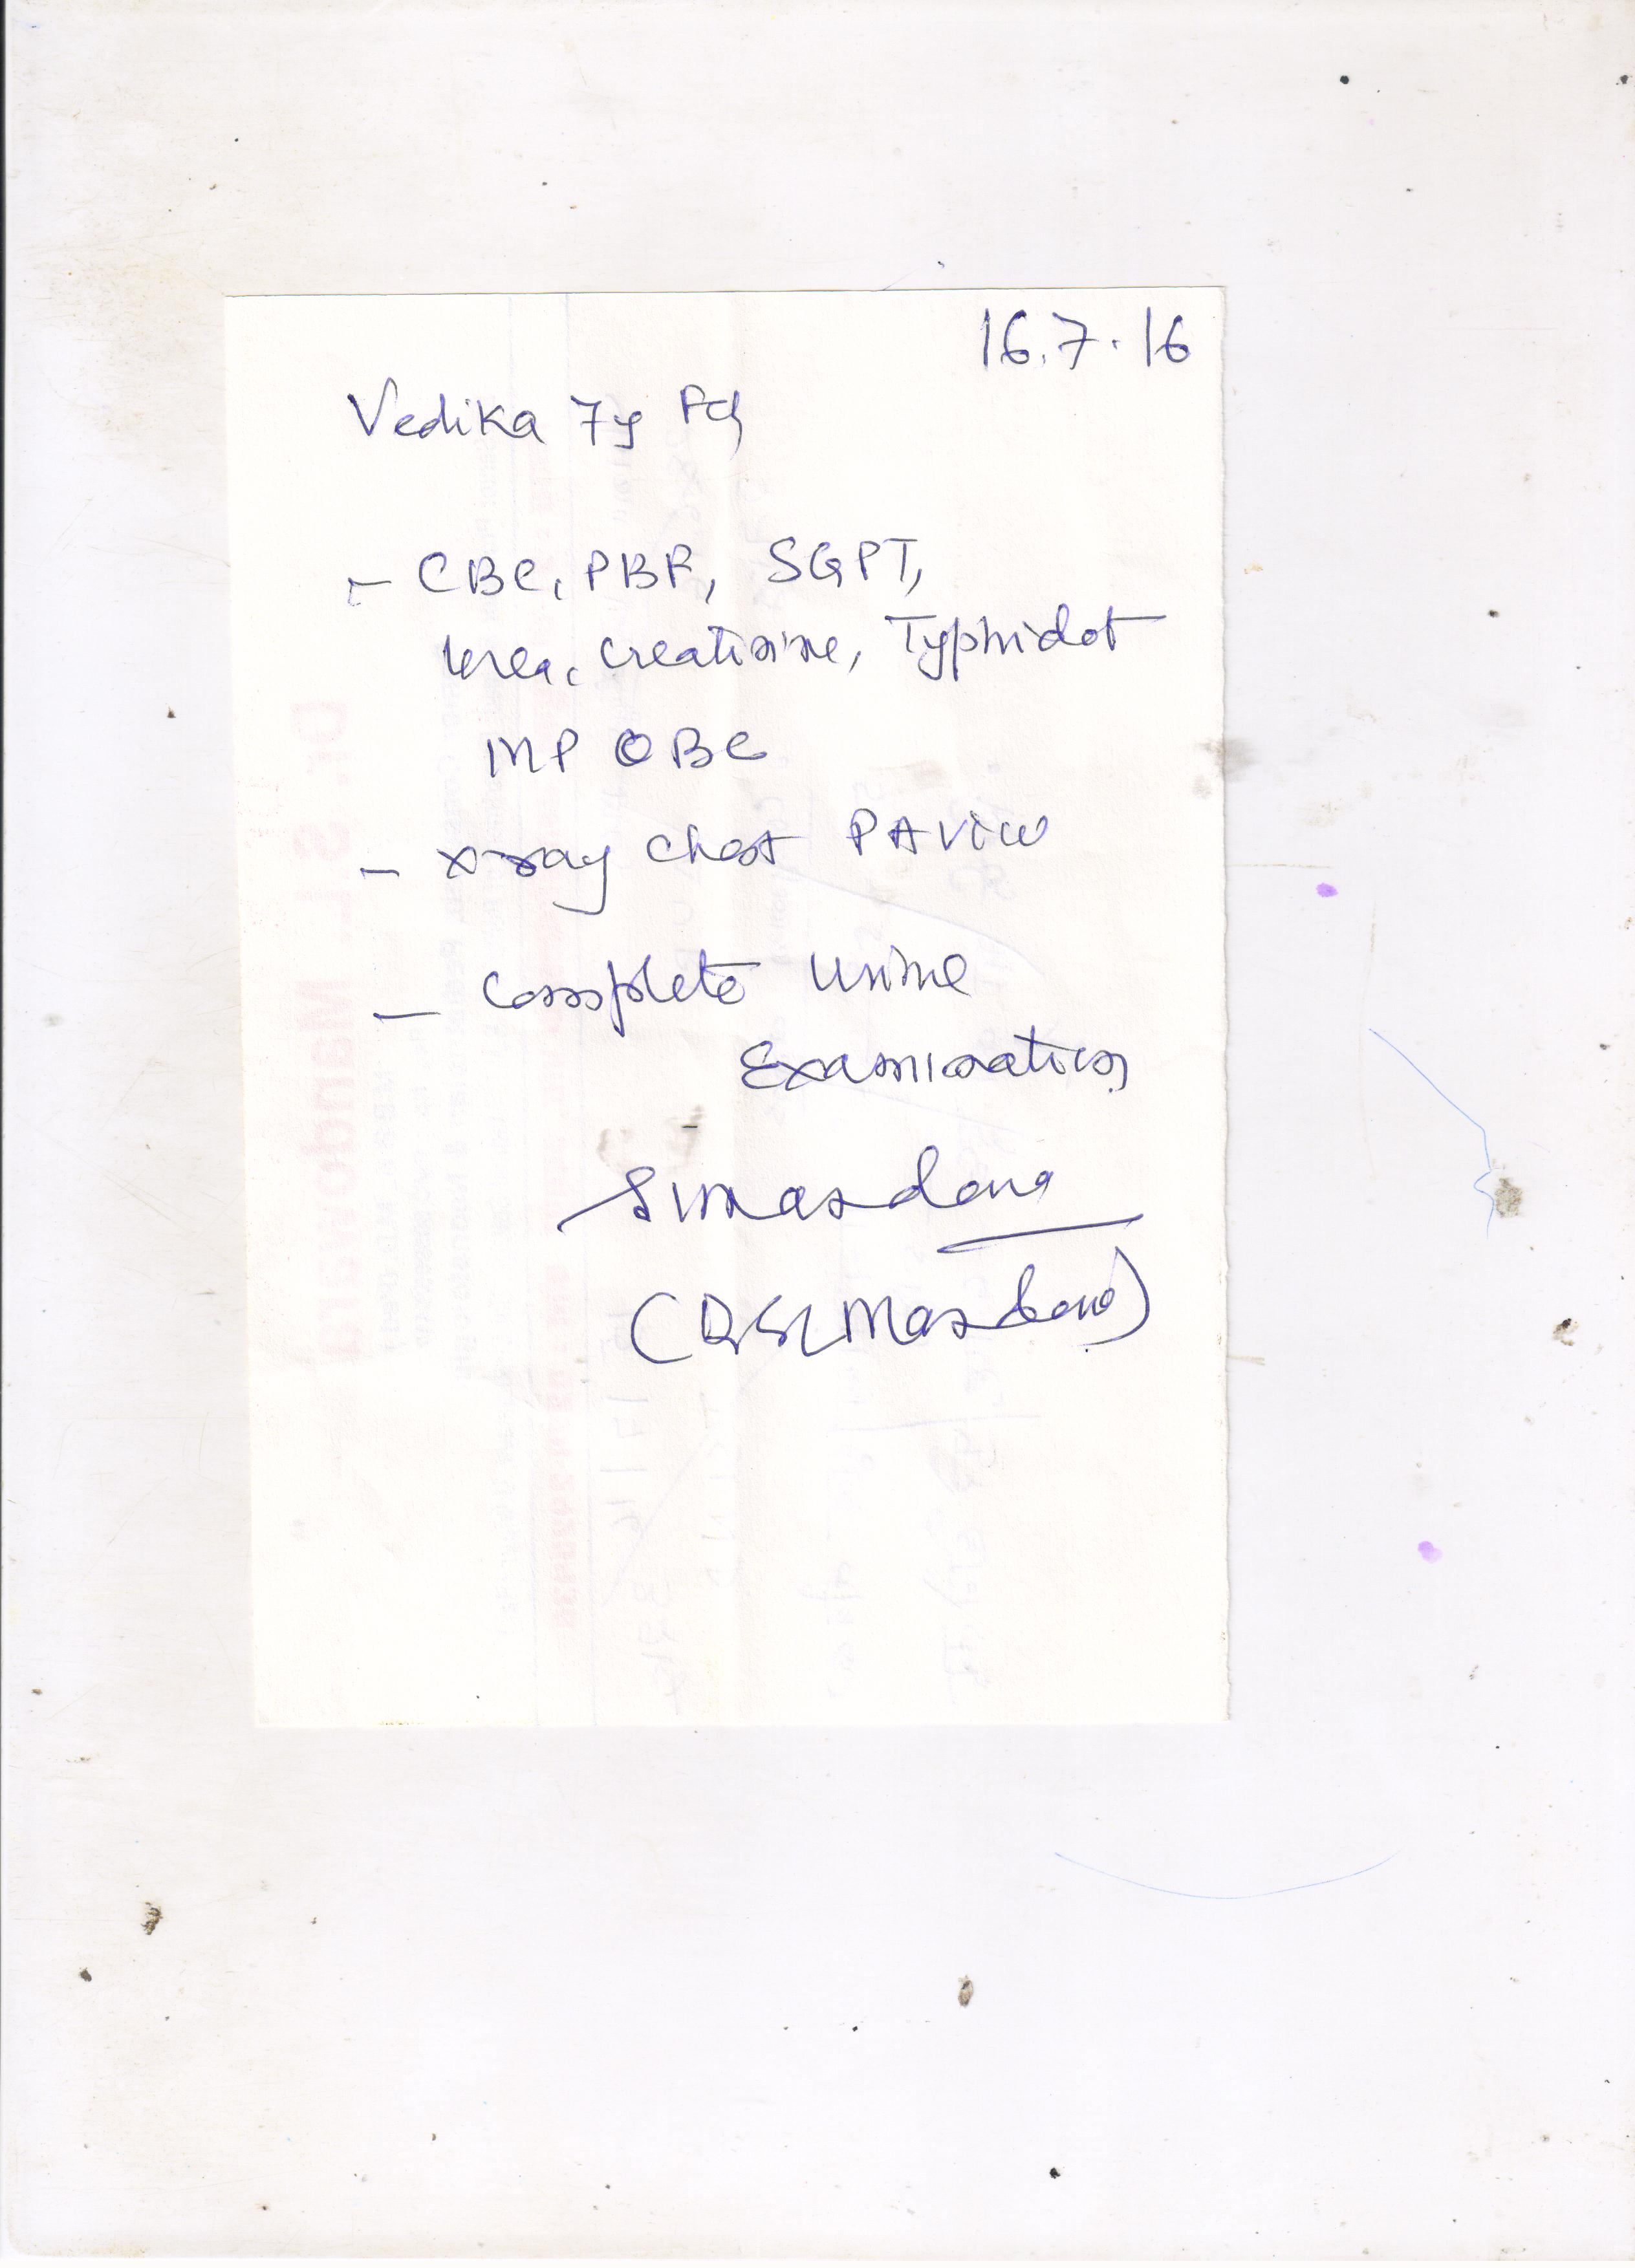 16.7.16
Vedika 7y Fch
- CBC, PBF, SGPT,
Urea, Creatinine, Typhidot
MP QBC
- x-ray chest PA View
- Complete Urine
Examination